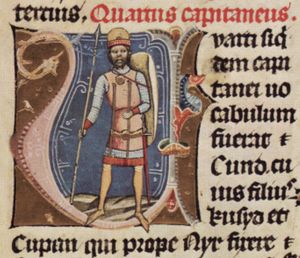 tercius. Quartus capitaneus.
Quarti siq
dem capi
tanei uo
cabulum
fuerat
Cund. cu
ius filius
kusyd et
Cupan qui prope Nyr